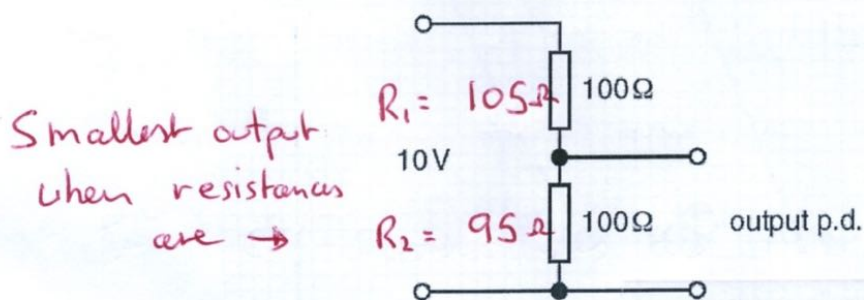 Smallest output
when resistances
are →
R₁ = 105Ω
100Ω
10V
R₂ = 95Ω
100Ω
output p.d.